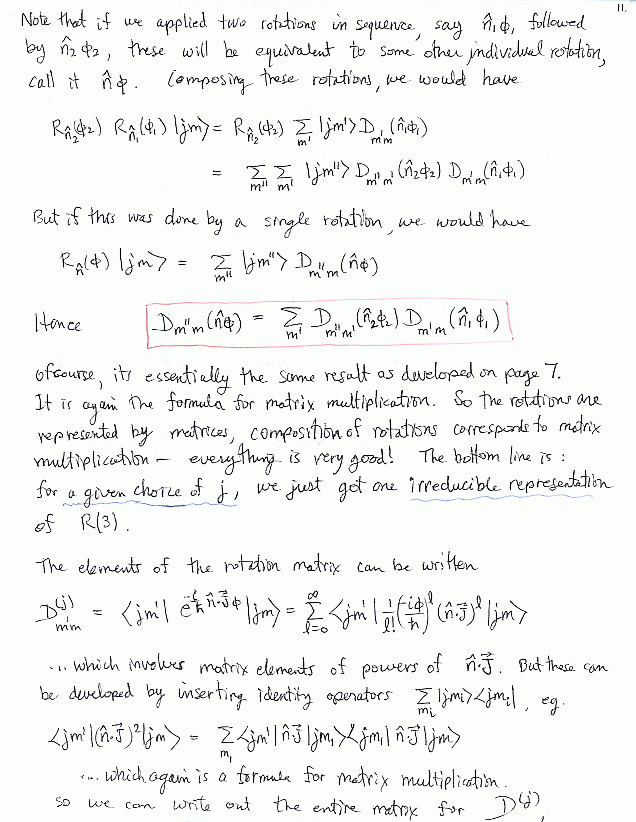 11.
Note that if we applied two rotations in sequence, say n̂₁ϕ₁ followed
by n̂₂ϕ₂, these will be equivalent to some other individual rotation,
call it n̂ϕ. Composing these rotations, we would have
R_{n̂₂}(ϕ₂) R_{n̂₁}(ϕ₁) |jm⟩ = R_{n̂₂}(ϕ₂) Σ_{m'} |jm'⟩ D_{m'm}(n̂₁ϕ₁)
= Σ_{m''} Σ_{m'} |jm''⟩ D_{m''m'}(n̂₂ϕ₂) D_{m'm}(n̂₁ϕ₁)
But if this was done by a single rotation, we would have
R_{n̂}(ϕ) |jm⟩ = Σ_{m''} |jm''⟩ D_{m''m}(n̂ϕ)
Hence D_{m''m}(n̂ϕ) = Σ_{m'} D_{m''m'}(n̂₂ϕ₂) D_{m'm}(n̂₁ϕ₁)
Ofcourse, its essentially the same result as developed on page 7.
It is again the formula for matrix multiplication. So the rotations are
represented by matrices, composition of rotations corresponds to matrix
multiplication – everything is very good! The bottom line is :
for a given choice of j, we just get one irreducible representation
of R(3).
The elements of the rotation matrix can be written
D^{(j)}_{m'm} = ⟨jm'| e^{-i/ħ n̂·J⃗ϕ} |jm⟩ = Σ_{l=0}^{∞} ⟨jm'| 1/l! (-iϕ/ħ)^l (n̂·J⃗)^l |jm⟩
... which involves matrix elements of powers of n̂·J⃗. But these can
be developed by inserting identity operators Σ_{mᵢ} |jmᵢ⟩⟨jmᵢ|, eg.
⟨jm'|(n̂·J⃗)²|jm⟩ = Σ_{m₁} ⟨jm'| n̂·J⃗ |jm₁⟩⟨jm₁| n̂·J⃗ |jm⟩
... which again is a formula for matrix multiplication.
so we can write out the entire matrix for D^{(j)},